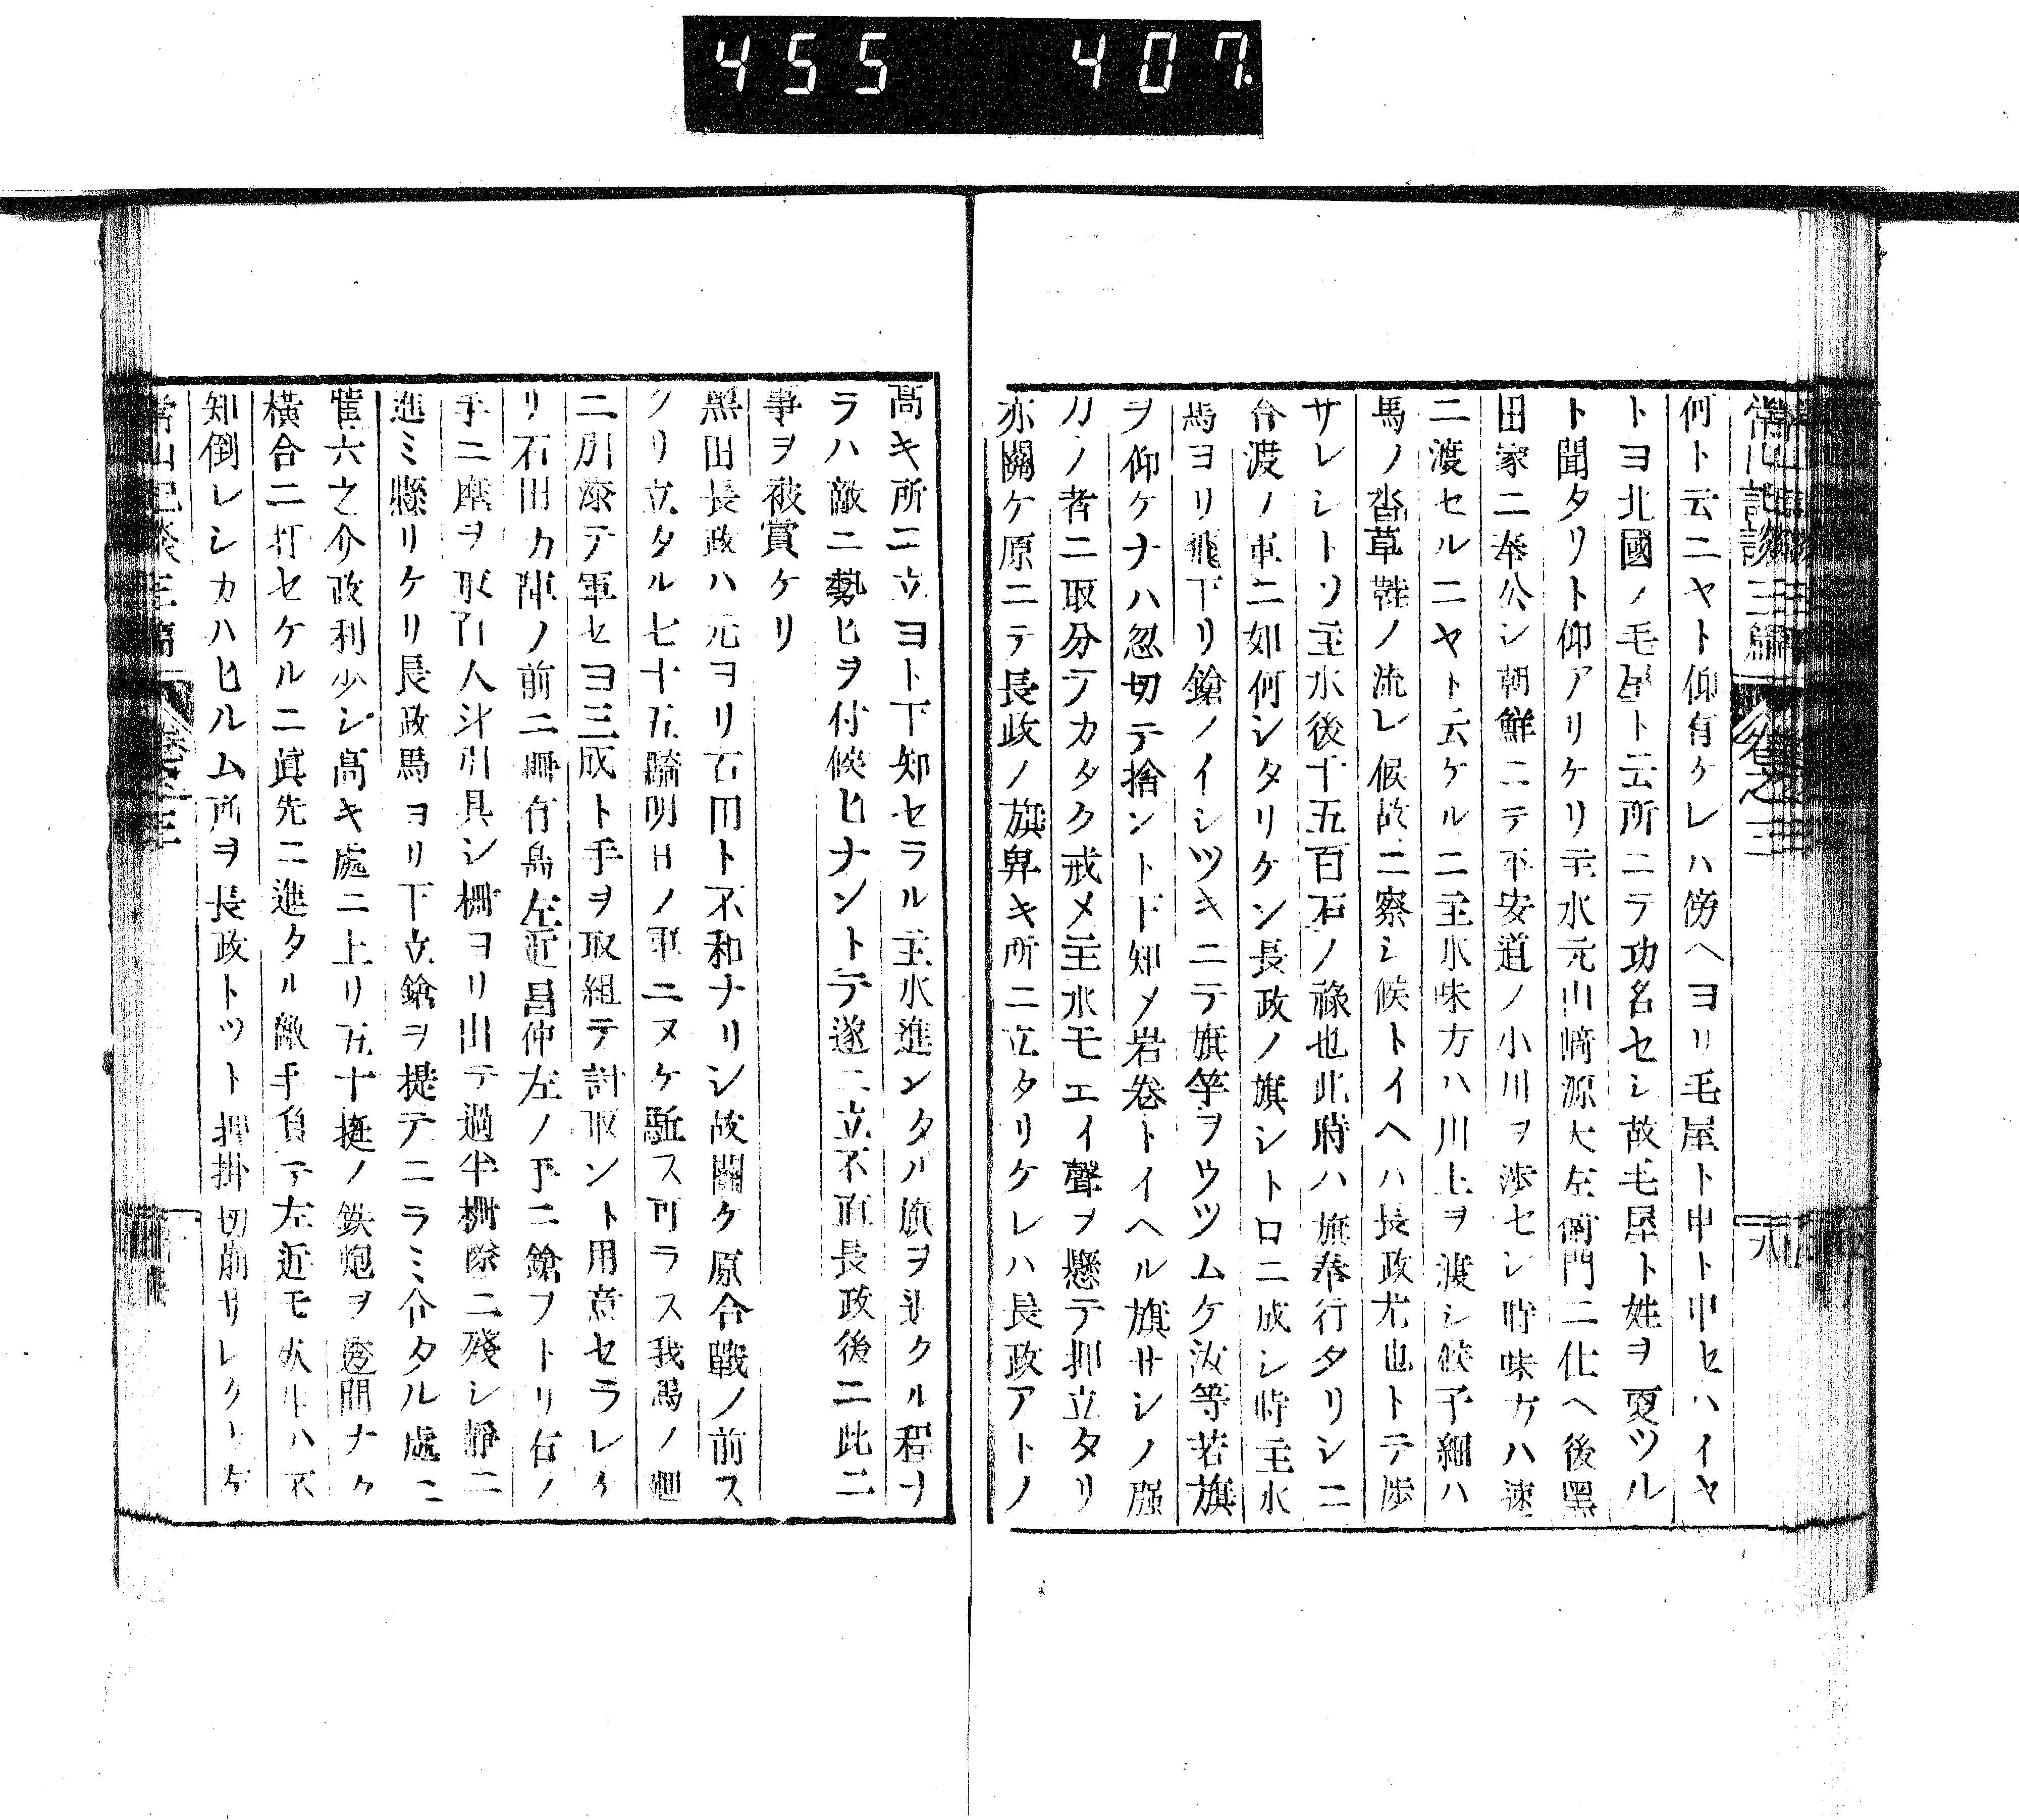 455 407
何ト云ニヤト仰有ケレハ傍ヘヨリ毛屋ト申ト申セハイヤ
トヨ北國ノ毛屋ト云所ニテ功名セシ故毛屋ト姓ヲ更ツル
ト聞タリト仰アリケリ主水元山﨑源太左衞門ニ仕ヘ後黑
田家ニ奉公シ朝鮮ニテ平安道ノ小川ヲ渉セシ時味方ハ速
ニ渡セルニヤト云ケルニ主水味方ハ川上ヲ渡シ候子細ハ
馬ノ沓草鞋ノ流レ候故ニ察シ候トイヘハ長政尤也トテ渉
サレシトソ主水後十五百石ノ祿也此時ハ旗奉行タリシニ
合渡ノ軍ニ如何シタリケン長政ノ旗シトロニ成シ時主水
馬ヨリ飛下リ鎗ノイシツキニテ旗竿ヲウツムケ汝等若旗
ヲ仰ケナハ忽切テ捨ント下知メ岩卷トイヘル旗サシノ强
力ノ者ニ取分テカタク戒メ主水モエイ聲ヲ懸テ押立タリ
亦關ケ原ニテ長政ノ旗卑キ所ニ立タリケレハ長政アトノ
常山紀談三編 卷之三 八
高キ所ニ立ヨト下知セラル主水進ンタル旗ヲ退クル程ナ
ラハ敵ニ勢ヒヲ付候ヒナントテ遂ニ立不直長政後ニ此二
事ヲ被賞ケリ
黑田長政ハ元ヨリ石田ト不和ナリシ故關ケ原合戰ノ前ス
クリ立タル七十五騎明日ノ軍ニヌケ駈ス可ラス我馬ノ廻
ニ引添テ軍セヨ三成ト手ヲ取組テ討取ント用意セラレケ
リ石田カ陣ノ前ニ柵有島左近昌仲左ノ手ニ鎗ヲトリ右ノ
手ニ麾ヲ取百人斗引具シ柵ヨリ出テ過半柵際ニ殘シ靜ニ
進ミ懸リケリ長政馬ヨリ下立鎗ヲ提テニラミ介タル處ニ
菅六之介政利少シ高キ處ニ上リ五十挺ノ鉄炮ヲ透間ナク
橫合ニ打セケルニ眞先ニ進タル敵手負テ左近モ
知倒レシカハヒルム所ヲ長政トツト押掛切崩サレ
常山紀談三編 卷之三